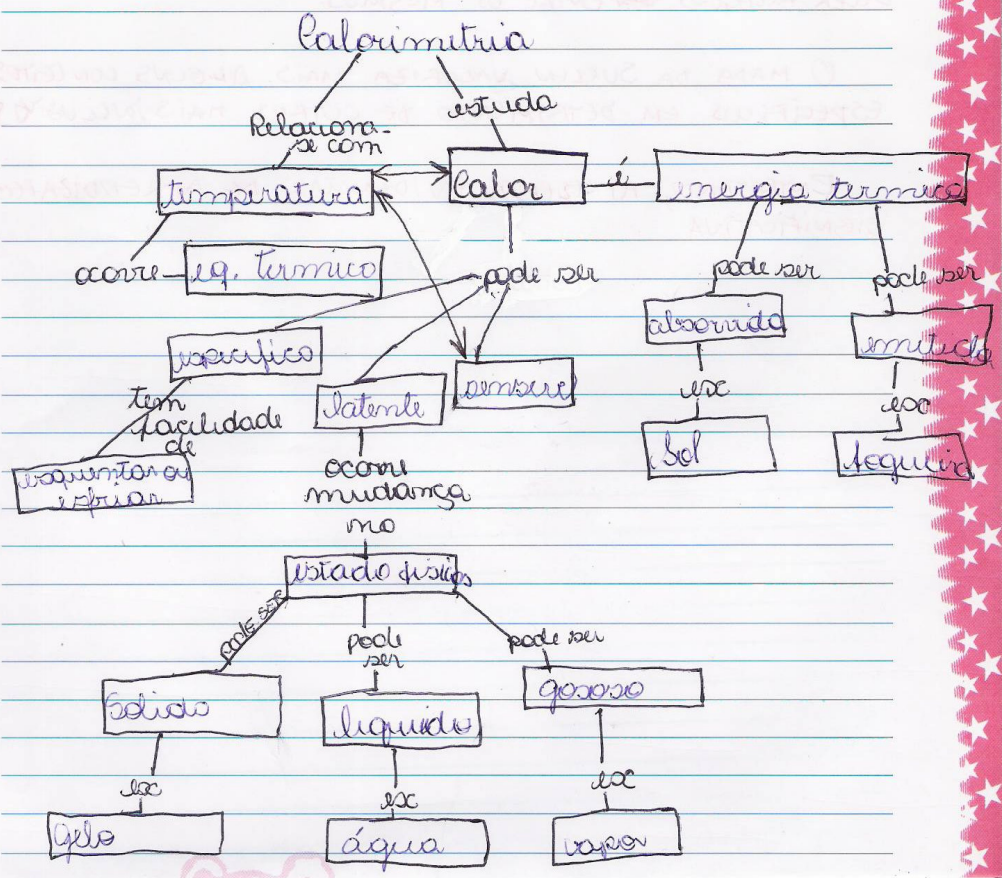 Calorimetria
estuda
Relaciona-
se com
temperatura
Calor
é
energia termica
ocorre
eq. termico
pode ser
pode ser
pode ser
especifico
latente
sensivel
absorvida
emitida
tem
facilidade
de
esquentar ou
esfriar
ex
ex
Sol
fogueira
ocorre
mudança
no
estado fisico
PODE SER
pode
ser
pode ser
Solido
liquido
gososo
ex
ex
ex
gelo
água
vapor